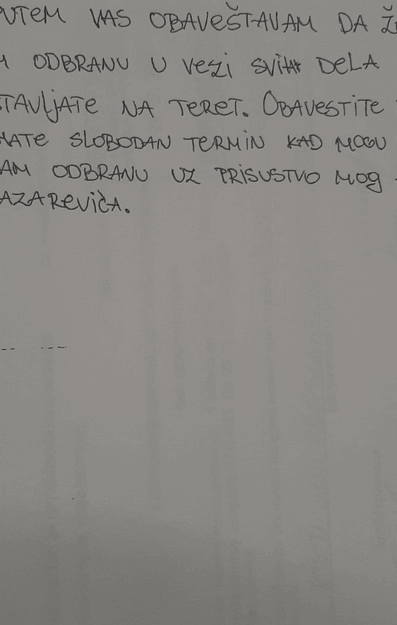 PUTEM VAS OBAVEŠTAVAM DA Ž
ODBRANU U VEZI SVIH DELA
STAVLJATE NA TERET. OBAVESTITE
IMATE SLOBODAN TERMIN KAD MOGU
DAM ODBRANU UZ PRISUSTVO MOG
LAZAREVIĆA.